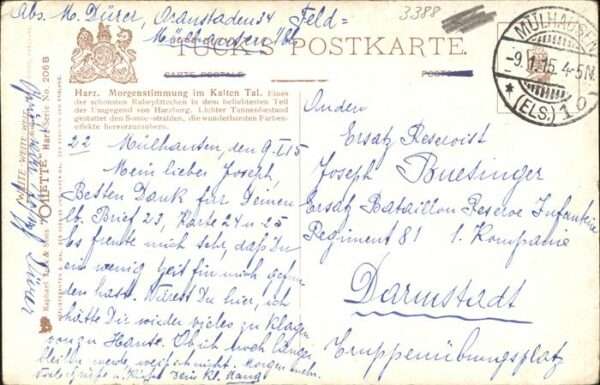 Abs. M. Dürer, Oranstaden 34
Feld=
3388
Mülhausen i/Els.
TUCK'S POSTKARTE.
CARTE POSTALE
MÜLHAUSEN
-9.1.15. 4-5N.
* (ELS.) 1 o
Harz. Morgenstimmung im Kalten Tal. Eines
der schönsten Ruheplätzchen in dem beliebtesten Teil
der Umgegend von Harzburg. Lichter Tannenbestand
gestattet den Sonnenstrahlen, die wunderbarsten Farben-
effekte hervorzuzaubern.
22 Mülhausen, den 9.I.15
Mein lieber Joseph,
Besten Dank für Deinen
lb. Brief 23, Karte 24 u. 25
Es freute mich sehr, daß Du
ein wenig Zeit für mich gefun
den hast. Wärest Du hier, ich
hätte Dir wieder vieles zu klagen
von zu Hause. Ob ich noch länger
bleiben werde weiß ich nicht. Morgen mehr.
An den
Ersatz Reservist
Joseph Buesinger
Ersatz Bataillon Reserve Infanterie
Regiment 81 1. Kompanie
Darmstadt
Truppenübungsplatz
OILETTE Harz Serie No. 206 B
Raphael Tuck & Sons
Dürer